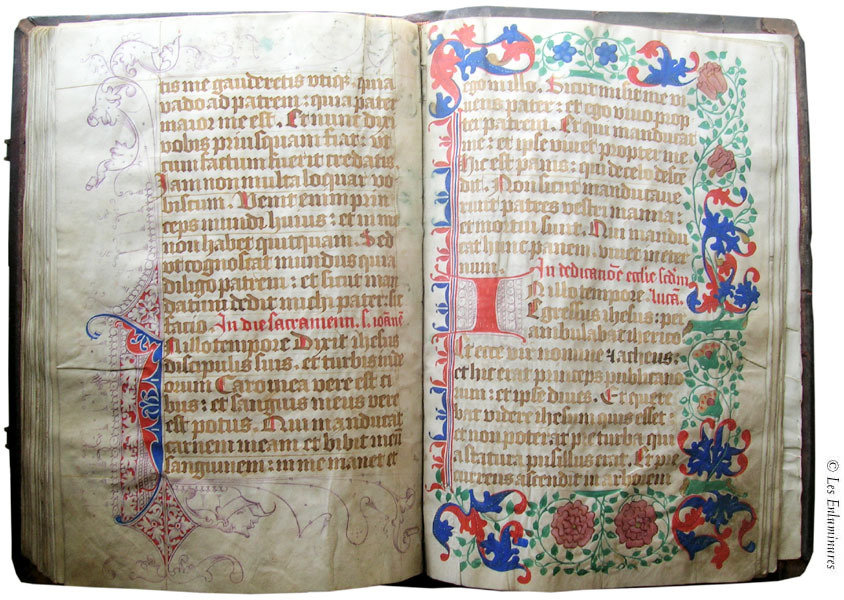 tis me gauderetis utiq; quia
vado ad patrem: quia pater
maior me est. Et nunc dixi
vobis priusquam fiat: ut
cum factum fuerit credatis.
Iam non multa loquar vo
biscum. Venit enim prin
ceps mundi huius: et in me
non habet quitquam. Sed
vt cognoscat mundus quia
diligo patrem: et sicut man
datum dedit michi pater: sic
facio. In die sacramenti. s. iohannem
In illo tempore Dixit ihesus
discipulis suis. et turbis iude
orum Caro mea vere est ci
bus: et sanguis meus vere
est potus. Qui manducat
carnem meam et bibit meum
sanguinem: in me manet et
ego in illo. Sicut misit me vi
uens pater: et ego viuo prop
ter patrem. Et qui manducat
me: et ipse viuet propter me
Hic est panis: qui de celo descen
dit. Non sicut manducaue
runt patres vestri manna:
et mortui sunt. Qui mandu
cat hunc panem: viuet in eter
num. In dedicatione ecclesie secundum
lucam.
In illo tempore.
Egressus ihesus: per
ambulabat iherico
Et ecce vir nomine zacheus:
et hic erat princeps publicano
rum: et ipse diues. Et quere
bat videre ihesum quis esset:
et non poterat pre turba quia
statura pusillus erat. Et pre
currens ascendit in arborem
© Les Enluminures